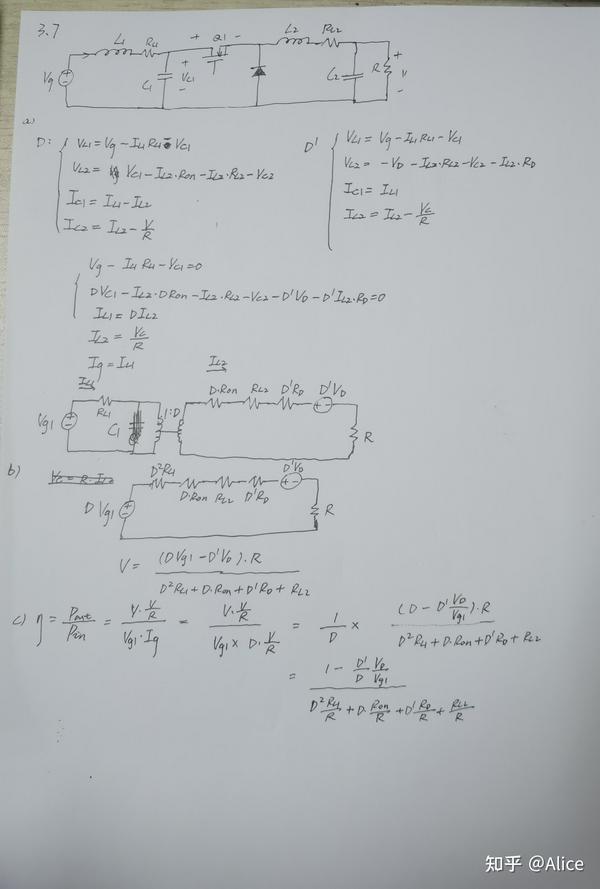 3.7
L1 RL1 + Q1 - L2 RL2
Vg C1 + VC1 - C2 R + V -
a)
D: VL1 = Vg - IL1 RL1 - VC1
VL2 = VC1 - IL2·Ron - IL2·RL2 - VC2
IC1 = IL1 - IL2
IL2 = IL2 - V/R
D' VL1 = Vg - IL1 RL1 - VC1
VL2 = -VD - IL2·RL2 - VC2 - IL2·RD
IC1 = IL1
IL2 = IL2 - VC/R
Vg - IL1 RL1 - VC1 = 0
DVC1 - IL2·DRon - IL2·RL2 - VC2 - D'VD - D'IL2·RD = 0
IL1 = DIL2
IL2 = VC/R
Ig = IL1
IL1 IL2
Vg1 RL1 C1 1:D D·Ron RL2 D'RD D'VD R
b) VC = R·IL2
DVg1 D²RL1 D·Ron RL2 D'RD D'VD R
V = (DVg1 - D'VD)·R / D²RL1 + D·Ron + D'RD + RL2
c) η = Pout/Pin = V·V/R / Vg1·Ig = V·V/R / Vg1 × D·V/R = 1/D × (D - D'VD/Vg1)·R / D²RL1 + D·Ron + D'RD + RL2
= 1 - D'/D VD/Vg1 / D²RL1/R + D·Ron/R + D'RD/R + RL2/R
知乎 @Alice